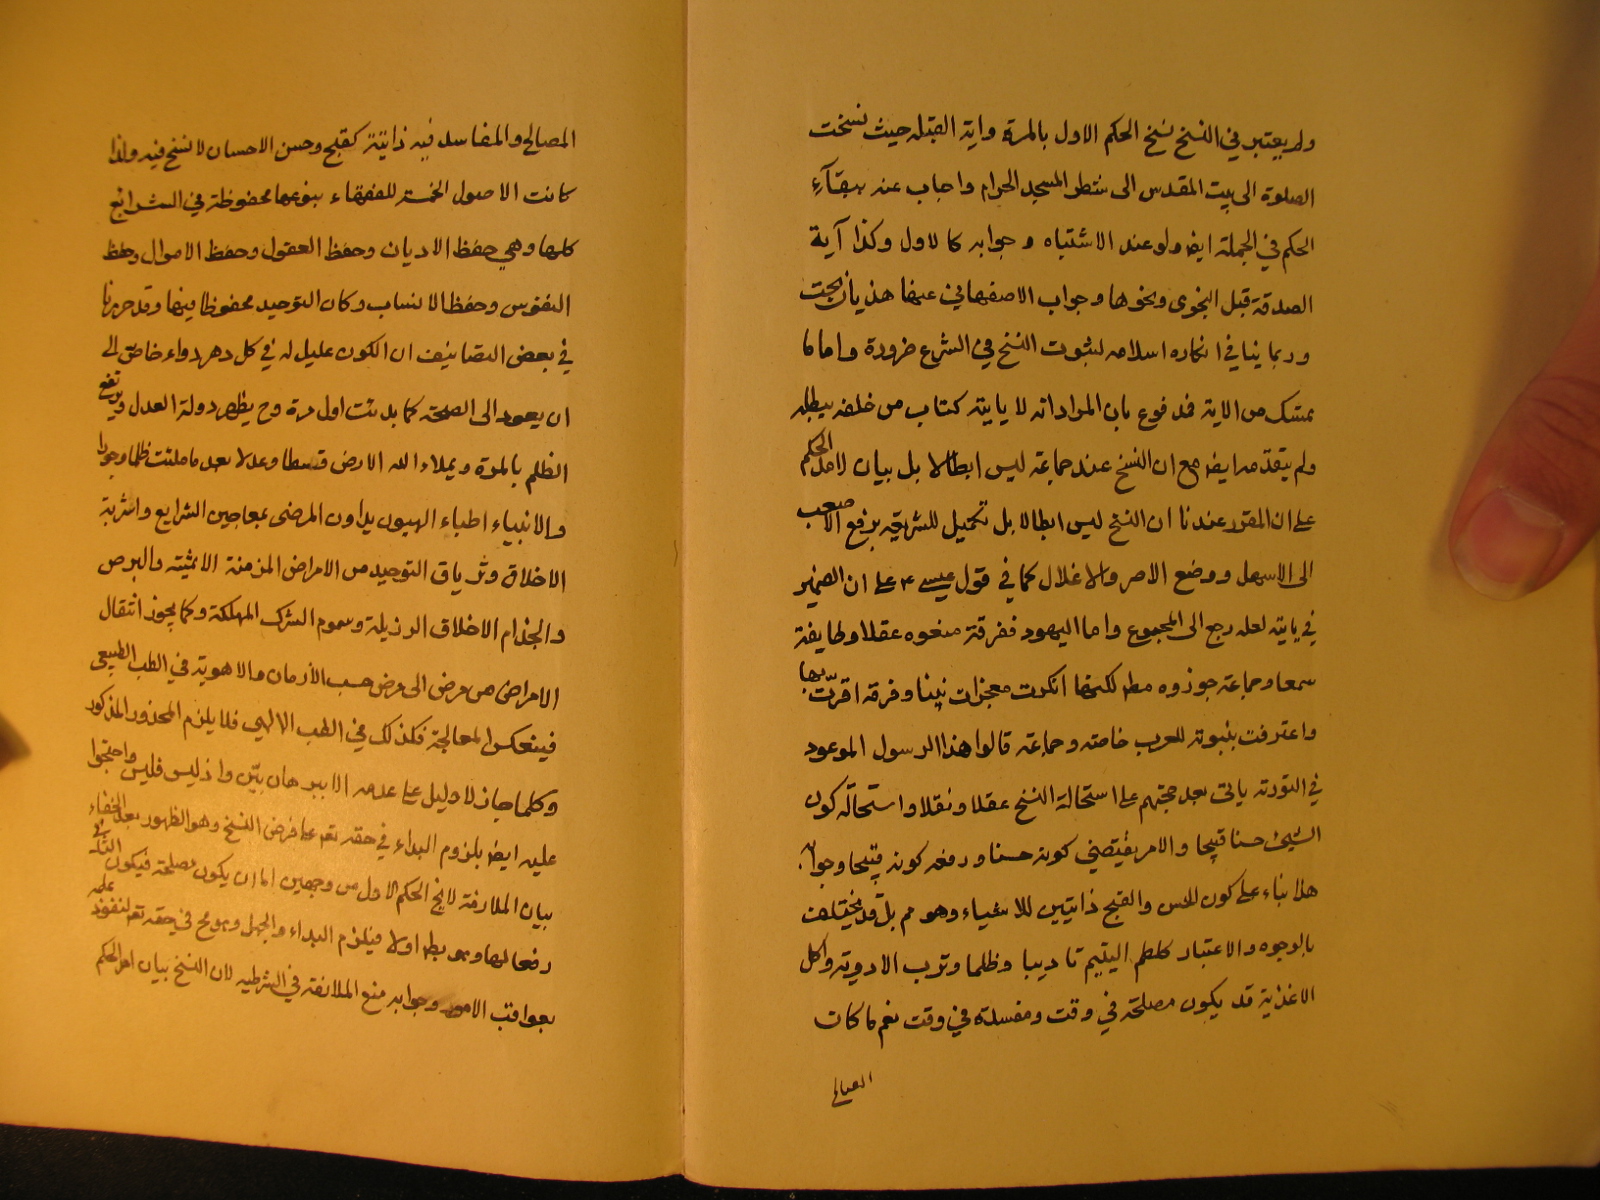 ولم يعتبر في النسخ نسخ الحكم الاول بالمرة واية القبله حيث نسخت
الصلوة الى بيت المقدس الى شطر المسجد الحرام واجاب عنه ببقآء
الحكم في الجملة ايضا ولو عند الاشتباه وجوابه كالاول وكذا آية
الصدقة قبل النجوى ونحوها وجواب الاصفهاني عنها هذيان بحت
وربما ينافي انكاره اسلامه لثبوت النسخ في الشرع ضرورة واما ما
تمسك من الاية فمدفوع بان المراد انه لا ياتيه كتاب من خلفه يبطله
ولم يتقدمه ايضا مع ان النسخ عند جماعة ليس ابطالا بل بيان لامد الحكم
على ان المقرر عندنا ان النسخ ليس ابطالا بل تكميل للشريعة برفع الاصعب
الى الاسهل ووضع الاصر والاغلال كما في قول عيسى ٤ على ان الضمير
في ياتيه لعله رجع الى المجموع واما اليهود ففرقة منعوه عقلا وطايفة
سمعا وجماعة جوزوه مط لكنها انكرت معجزات نبينا وفرقة اقرت بها
واعترفت بنبوته للعرب خاصة وجماعة قالوا هذا الرسول الموعود
في التورته ياتى بعد حجتهم على استحالة النسخ عقلا ونقلا واستحالة كون
الشيئ حسنا قبيحا والامر يقتضي كونه حسنا ورفعه كونه قبيحا وجوابه
هذا بناء على كون الحسن والقبح ذاتيين للاشياء وهو مم بل قد يختلف
بالوجوه والاعتبار كلطم اليتيم تاديبا وظلما وشرب الادوية واكل
الاغذية قد يكون مصلحة في وقت ومفسدة في وقت نعم ما كان
المصالح
المصالح والمفاسد فيه ذاتية كقبح وحسن الاحسان لا نسخ فيه ولذا
كانت الاصول الخمسة للفقهاء بنوعها محفوظة في الشرايع
كلها وهي حفظ الاديان وحفظ العقول وحفظ الاموال وحفظ
النفوس وحفظ الانساب وكان التوحيد محفوظا فيها وقد حررنا
في بعض التصانيف ان الكون عليل له في كل دهر دواء خاص الى
ان يعود الى الصلحة كما بدئت اول مرة وح يظهر دولة العدل ويرتفع
الظلم بالمرة ويملاء الله الارض قسطا وعدلا بعد ما ملئت ظلما وجورا
والانبياء اطباء الهيون يداون المرضى بمعاجين الشرايع واشربة
الاخلاق وترياق التوحيد من الامراض المزمنة الاثمية والبرص
والجذام الاخلاق الرذيلة وسموم الشرك المهلكة وكما يجوز انتقال
الامراض من مرض الى مرض حسب الازمان والاهوية في الطب الطبيعى
فينعكس المعالجة فكذلك في الطب الالهي فلا يلزم المحذور المذكور
وكلما جاز لا دليل على عدمه الا ببرهان بيّن واذ ليس فليس واحتجوا
عليه ايضا بلزوم البداء في حقه تعم على فرض النسخ وهو الظهور بعد الخفاء
بيان الملازمة لا نسخ الحكم الاول من وجهين اما ان يكون مصلحة فيكون الثاني
رفعا لها وهو بط اولا فيلزم البداء والجهل وهو مح في حقه تعم لنفوذ علمه
بعواقب الامور وجوابه منع الملازمة في الشرطيه لان النسخ بيان امد الحكم